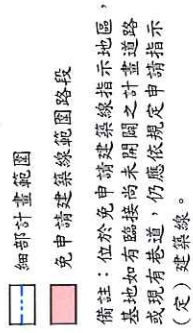 細部計畫範圍
免申請建築線範圍路段
備註：位於免申請建築線指示地區，
基地如有臨接尚未開闢之計畫道路
或現有巷道，仍應依規定申請指示
(定) 建築線。